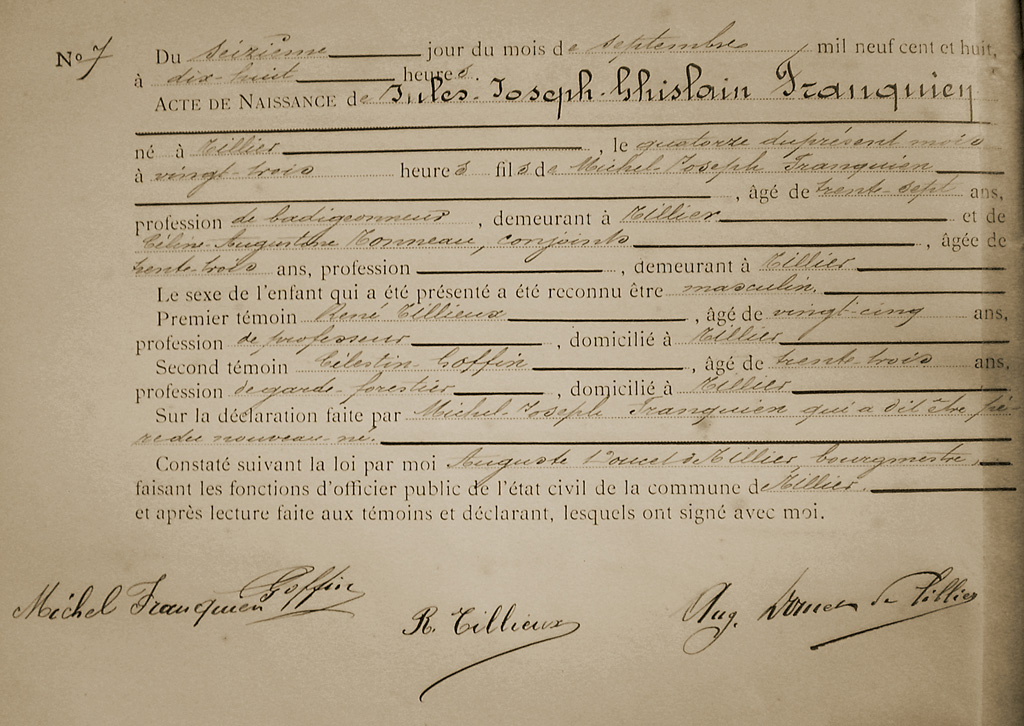 No 7 Du seizième jour du mois de septembre, mil neuf cent et huit,
à dix-huit heures.
ACTE DE NAISSANCE de Jules-Joseph-Ghislain Franquien
né à Tillier, le quatorze du présent mois
à vingt-trois heures fils de Michel-Joseph Franquien
, âgé de trente-sept ans,
profession de badigeonneur, demeurant à Tillier et de
Céline-Augustine Tonneau, conjoints, âgée de
trente-trois ans, profession , demeurant à Tillier
Le sexe de l'enfant qui a été présenté a été reconnu être masculin.
Premier témoin René Tillieux, âgé de vingt-cinq ans,
profession de professeur, domicilié à Tillier
Second témoin Célestin Goffin, âgé de trente-trois ans,
profession de garde-forestier, domicilié à Tillier
Sur la déclaration faite par Michel-Joseph Franquien qui a dit être pè-
re du nouveau-né.
Constaté suivant la loi par moi Auguste de Tillier, bourgmestre,
faisant les fonctions d'officier public de l'état civil de la commune de Tillier.
et après lecture faite aux témoins et déclarant, lesquels ont signé avec moi.
Michel Franquien Goffin
R. Tillieux
Aug. de Tillier